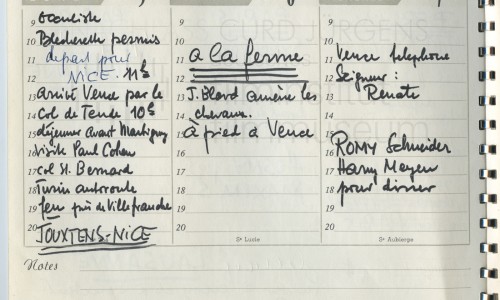 Blecherette permis
départ pour
NICE. 11h
arrivé Vence par le
Col de Tende 10h
déjeuner avant Martigny
visite Paul Cohen
col St. Bernard
Turin autoroute
feu près de Villefranche
JOUXTENS-NICE
a la ferme
J. Blord amène les
chevaux.
à pied à Vence
Vence telephone
Seigneur :
Renate
ROMY Schneider
Harry Meyen
pour diner
9
10
11
12
13
14
15
16
17
18
19
20
9
10
11
12
13
14
15
16
17
18
19
20
Ste Lucie
9
10
11
12
13
14
15
16
17
18
19
20
Ste Aubierge
Notes
CURD JÜRGENS
filmmuseum